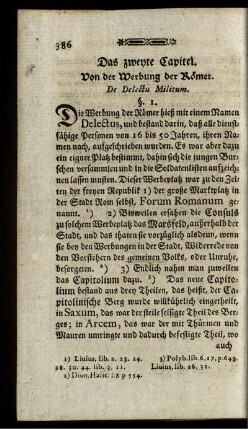 386
Das zweyte Capitel.
Von der Werbung der Römer.
De Delectu Militum.
§. 1.
Die Werbung der Römer hieß mit einem Namen
Delectus, und bestand darin, daß alle dienst-
fähige Personen von 16 bis 50 Jahren, ihren Na-
men nach, aufgeschrieben wurden. Es war aber dazu
ein eigner Platz bestimmt, dahin sich die jungen Bur-
schen versammlen und in die Soldatenlisten aufzeich-
nen lassen musten. Dieser Werbplatz war zu den Zei-
ten der freyen Republik 1) der große Marktplatz in
der Stadt Rom selbst, Forum Romanum ge-
nannt. ¹) 2) Bisweilen ersahen die Consuls
zu solchem Werbeplatz das Marsfeld, außerhalb der
Stadt, und das thaten sie vorzüglich alsdenn, wenn
sie bey den Werbungen in der Stadt, Widerrede von
den Vorstehern des gemeinen Volks, oder Unruhe,
besorgeten. ²) 3) Endlich nahm man zuweilen
das Capitolium dazu. ³) Das neue Capito-
lium bestand aus drey Theilen, das heißt, der Ca-
pitolinische Berg wurde willkührlich eingetheilt,
in Saxum, das war der steile felsigte Theil des Ber-
ges; in Arcem, das war der mit Thürmen und
Mauren umringte und dadurch befestigte Theil, wo
auch
1) Liuius, lib. 2. 23. 24.
28. 30. 44. lib. 3. 11.
2) Dion. Halic. l. 8 p 554.
3) Polyb. lib. 6. 17. p 649.
Liuius, lib. 26, 31.